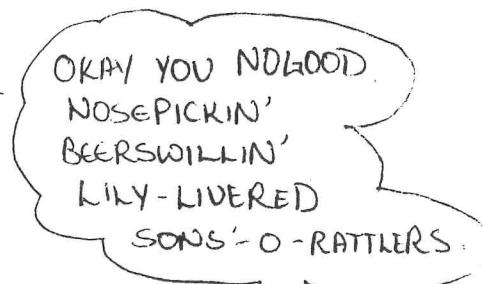 OKAY YOU NOGOOD
NOSEPICKIN'
BEERSWILLIN'
LILY-LIVERED
SONS'-O-RATTLERS.